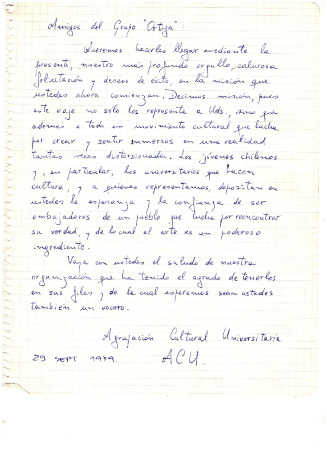 Amigos del Grupo "Ortiga"
Queremos hacerles llegar mediante la
presente, nuestro más profundo orgullo, calurosa
felicitación y deseos de éxito, en la misión que
ustedes ahora comienzan. Decimos misión, pues
este viaje no solo los representa a Uds, sino que
además a todo un movimiento cultural que lucha
por crear y sentir inmersos en una realidad
tantas veces distorsionada. Los jóvenes chilenos
y, en particular, los universitarios que hacen
cultura, y a quienes representamos, depositan en
ustedes la esperanza y la confianza de ser
embajadores de un pueblo que lucha por reencontrar
su verdad, y de lo cual el arte es un poderoso
ingrediente.
Vaya con ustedes el saludo de nuestra
organización que ha tenido el agrado de tenerlos
en sus filas y de la cual esperamos sean ustedes
también un vocero.
Agrupación Cultural Universitaria
29 SEPT 1979. ACU.